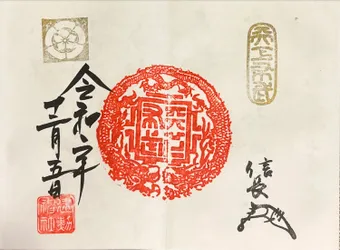 天下布武
信長
天下布武
令和年
十二月五日